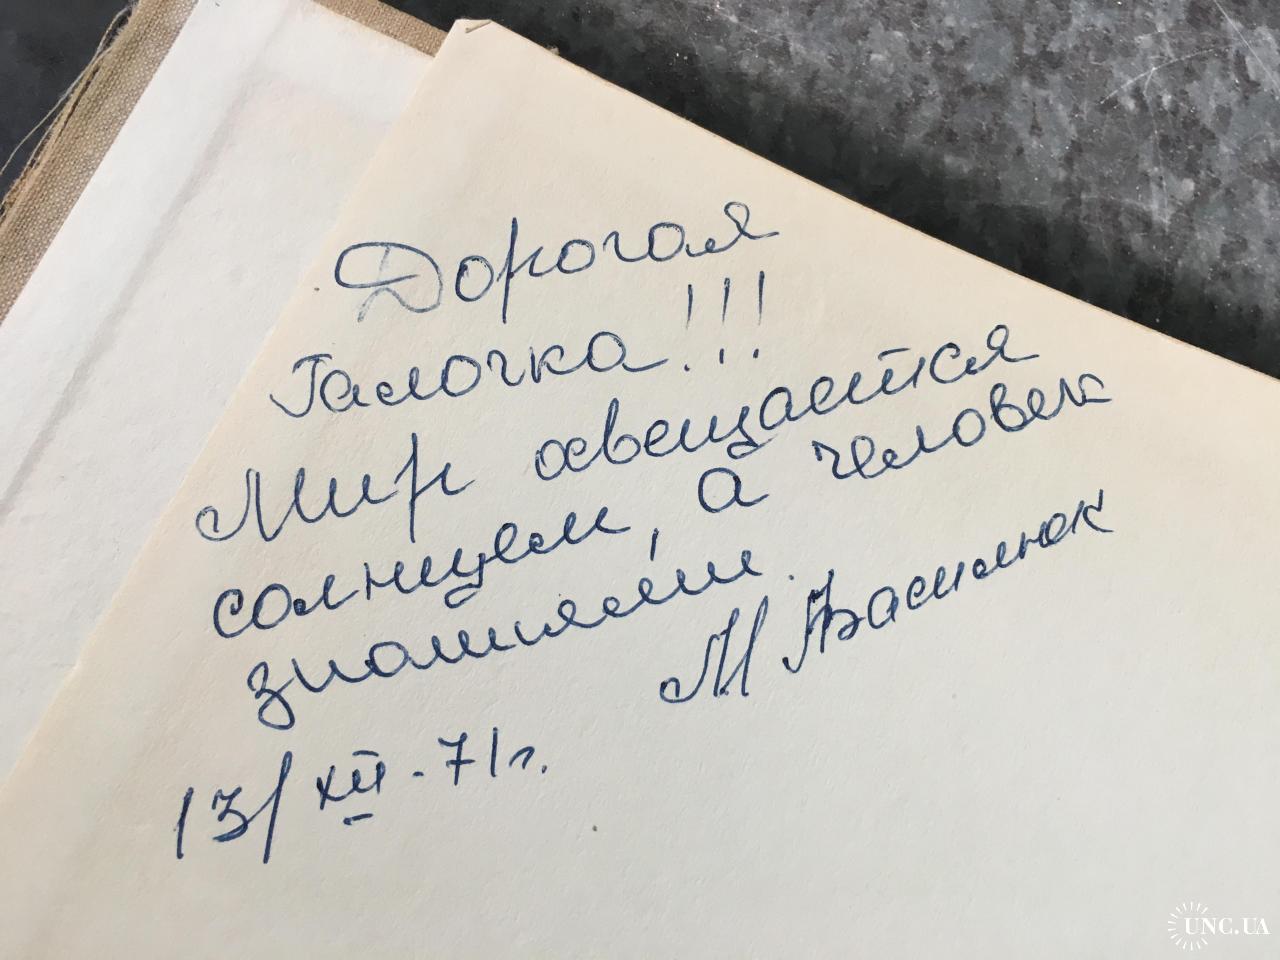 Дорогая
Галочка!!!
Мир освещается
солнцем, а человек
знаниями.
М Василюк
13/XII-71г.
UNC.UA